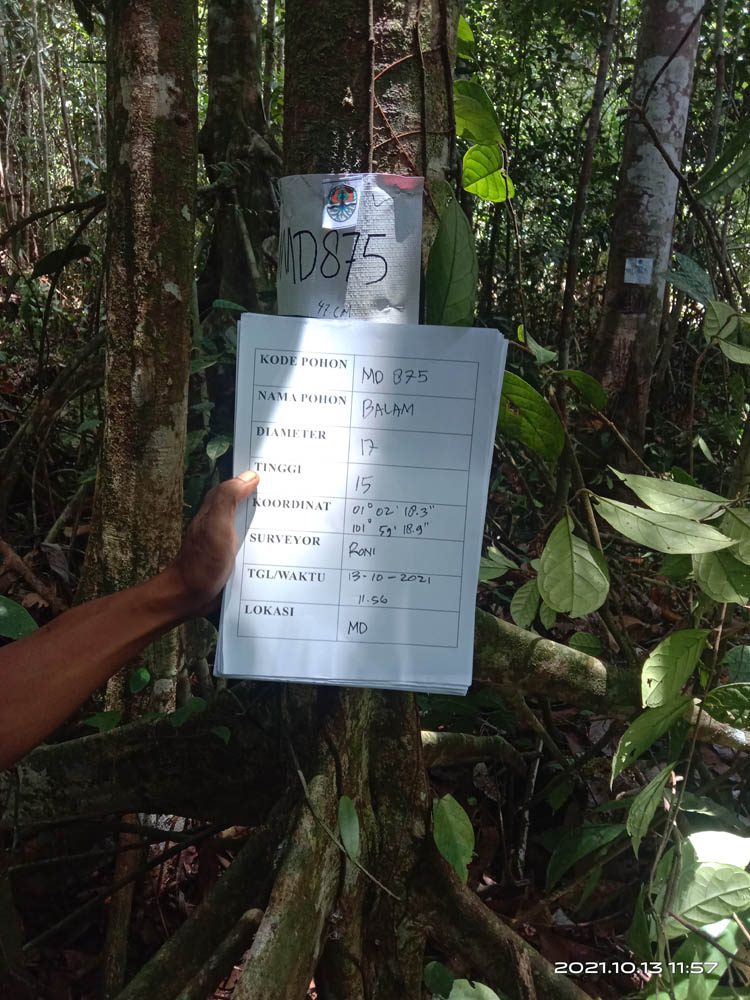 MD875
47 CM
KODE POHON MD 875
NAMA POHON BALAM
DIAMETER 17
TINGGI 15
KOORDINAT 01° 02' 18.3"
101° 59' 18.9"
SURVEYOR RONI
TGL/WAKTU 13-10-2021
11.56
LOKASI MD
2021.10.13 11:57